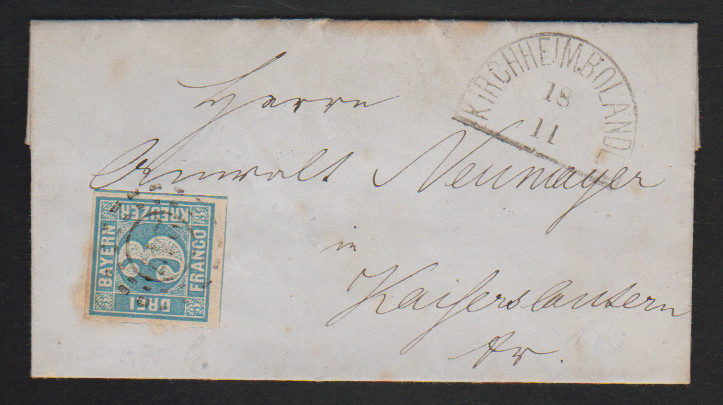 KIRCHHEIMBOLAND
18
11
Herrn
Anwalt Neumayer
in
Kaiserslautern
fr.
BAYERN
KREUZER
FRANCO
DREI
3